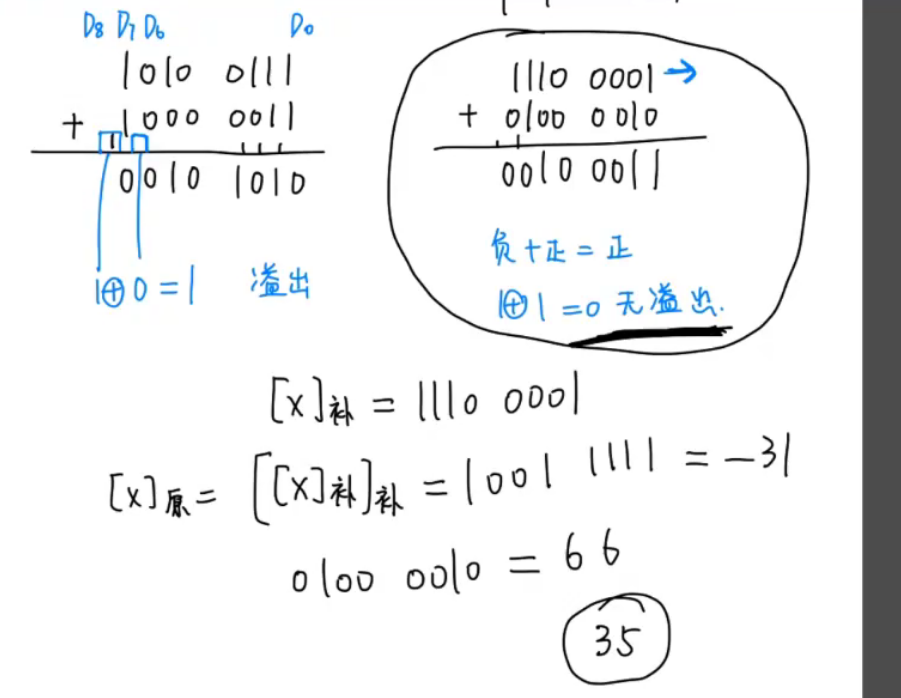 D8 D7 D6 D0
1010 0111
+ 1000 0011
1
0010 1010
1⊕0=1 溢出
1110 0001→
+ 0100 0010
0010 0011
负+正=正
1⊕1=0 无溢出.
[X]补 = 1110 0001
[X]原 = [[X]补]补 = 1001 1111 = -31
0100 0010 = 66
35